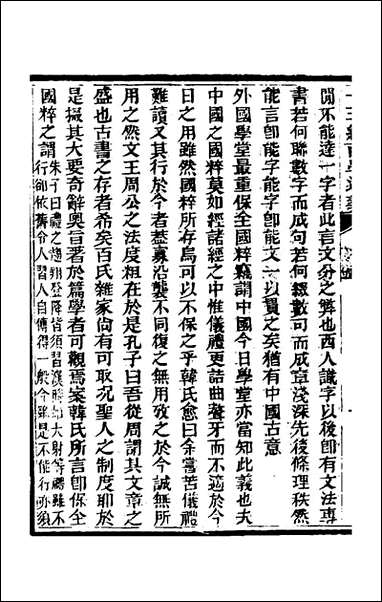 閒不能達一字者此言文分之弊也西人識字以後卽有文法專
書若何聯數字而成句若何綴數句而成章淺深先後條理秩然
能言卽能字能字卽能文一以貫之矣猶有中國古意
外國學堂最重保全國粹竊謂中國今日學堂亦當知此義也夫
中國之國粹莫如經諸經之中惟儀禮更詰曲聱牙而不適於今
日之用雖然國粹所存焉可以不保之乎韓氏愈曰余嘗苦儀禮
難讀又其行於今者蓋寡沿襲不同復之無用攷之於今誠無所
用之然文王周公之法度粗在於是孔子曰吾從周謂其文章之
盛也古書之存者希矣百氏雜家尙有可取况聖人之制度耶於
是掇其大要奇辭奧旨著於篇學者可觀焉案韓氏所言卽保全
國粹之謂朱子曰禮之趨翔登降皆須習漢時如大射等禮雖不
行卻依舊令人習人自傳得一般今雖是不能行亦須